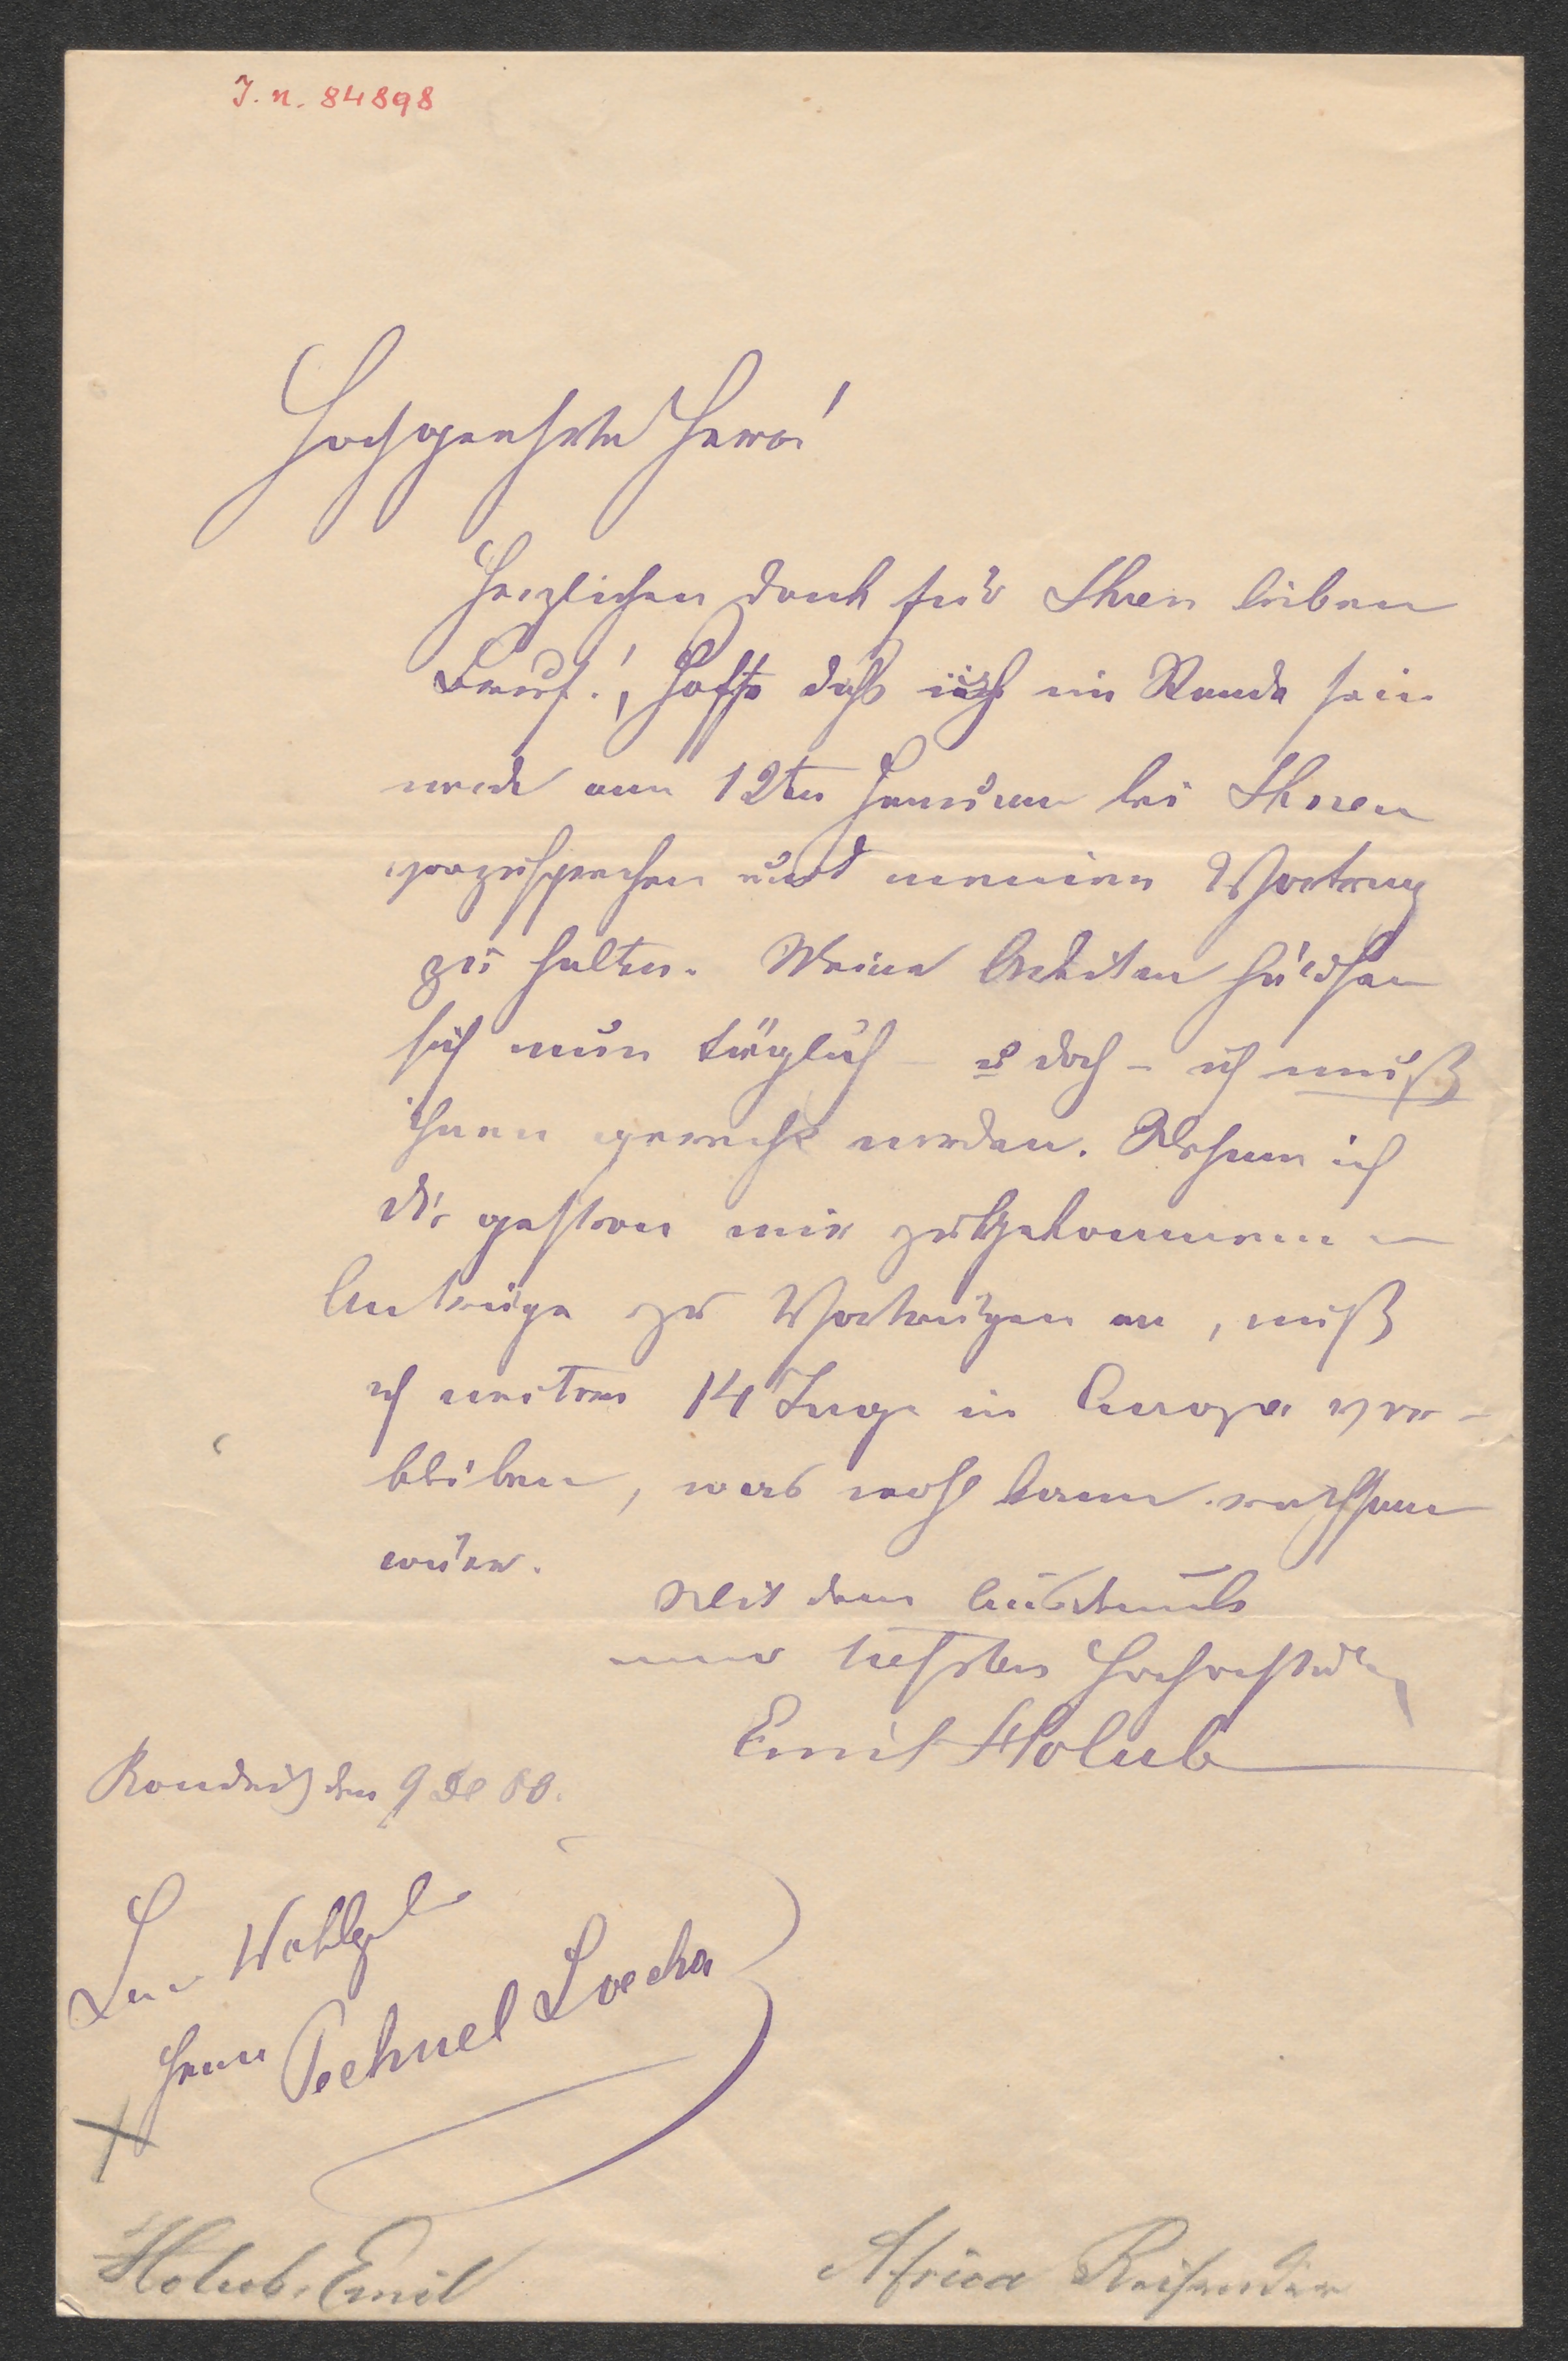 J. n. 84898
Hochgeehrter Herr!
Herzlichen Dank für Ihren lieben
Hoffe daß ich im Stande sein
werde am 12ten Januar bei Ihnen
vorzusprechen und meinen Vortrag
zu halten. Meine Arbeiten häufen
sich nun täglich – u doch – ich muß
ihnen gerecht werden. Nehme ich
die gestern mir zugekommenen
Anträge zu Vorträgen an, muß
ich weitere 14 Tage in Europa ver-
bleiben, was wohl kaum rathsam
wäre.
Mit dem Ausdrucke
meiner tiefsten Hochachtung
Emil Holub
den 9 De 80.
Sr Wohlgeb
Herrn Pechuel Loecha
Holub. Emil
Africa Reisender